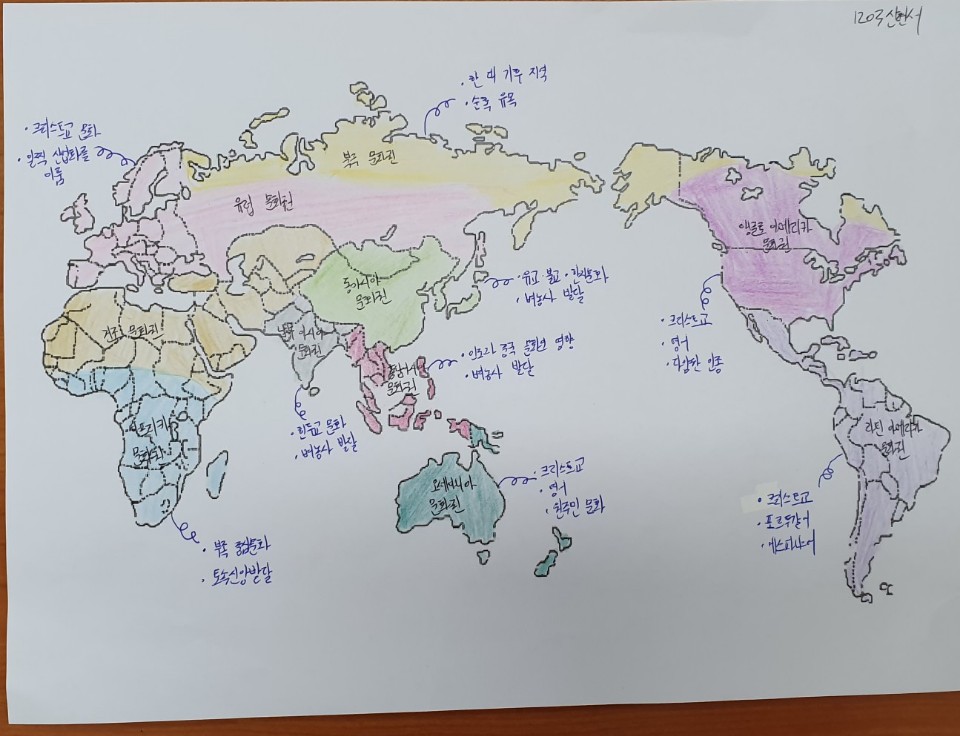 크리스트교 문화
일찍 산업화를
이룸
한대 기후 지역
순록 유목
북극 문화권
유럽 문화권
앵글로 아메리카
문화권
동아시아
문화권
유교 불교 한자문화
벼농사 발달
건조 문화권
남부 아시아
문화권
동남아시아
문화권
인도와 중국 문화의 영향
벼농사 발달
크리스트교
영어
다양한 인종
아프리카
문화권
힌두교 문화
벼농사 발달
라틴 아메리카
문화권
오세아니아
문화권
크리스트교
영어
원주민 문화
크리스트교
포르투갈어
에스파냐어
부족 중심문화
토속신앙발달